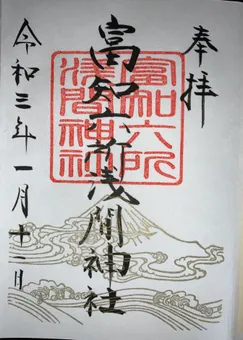 奉拝
富知六所浅間神社
富知六所
浅間神社
令和三年一月十一日